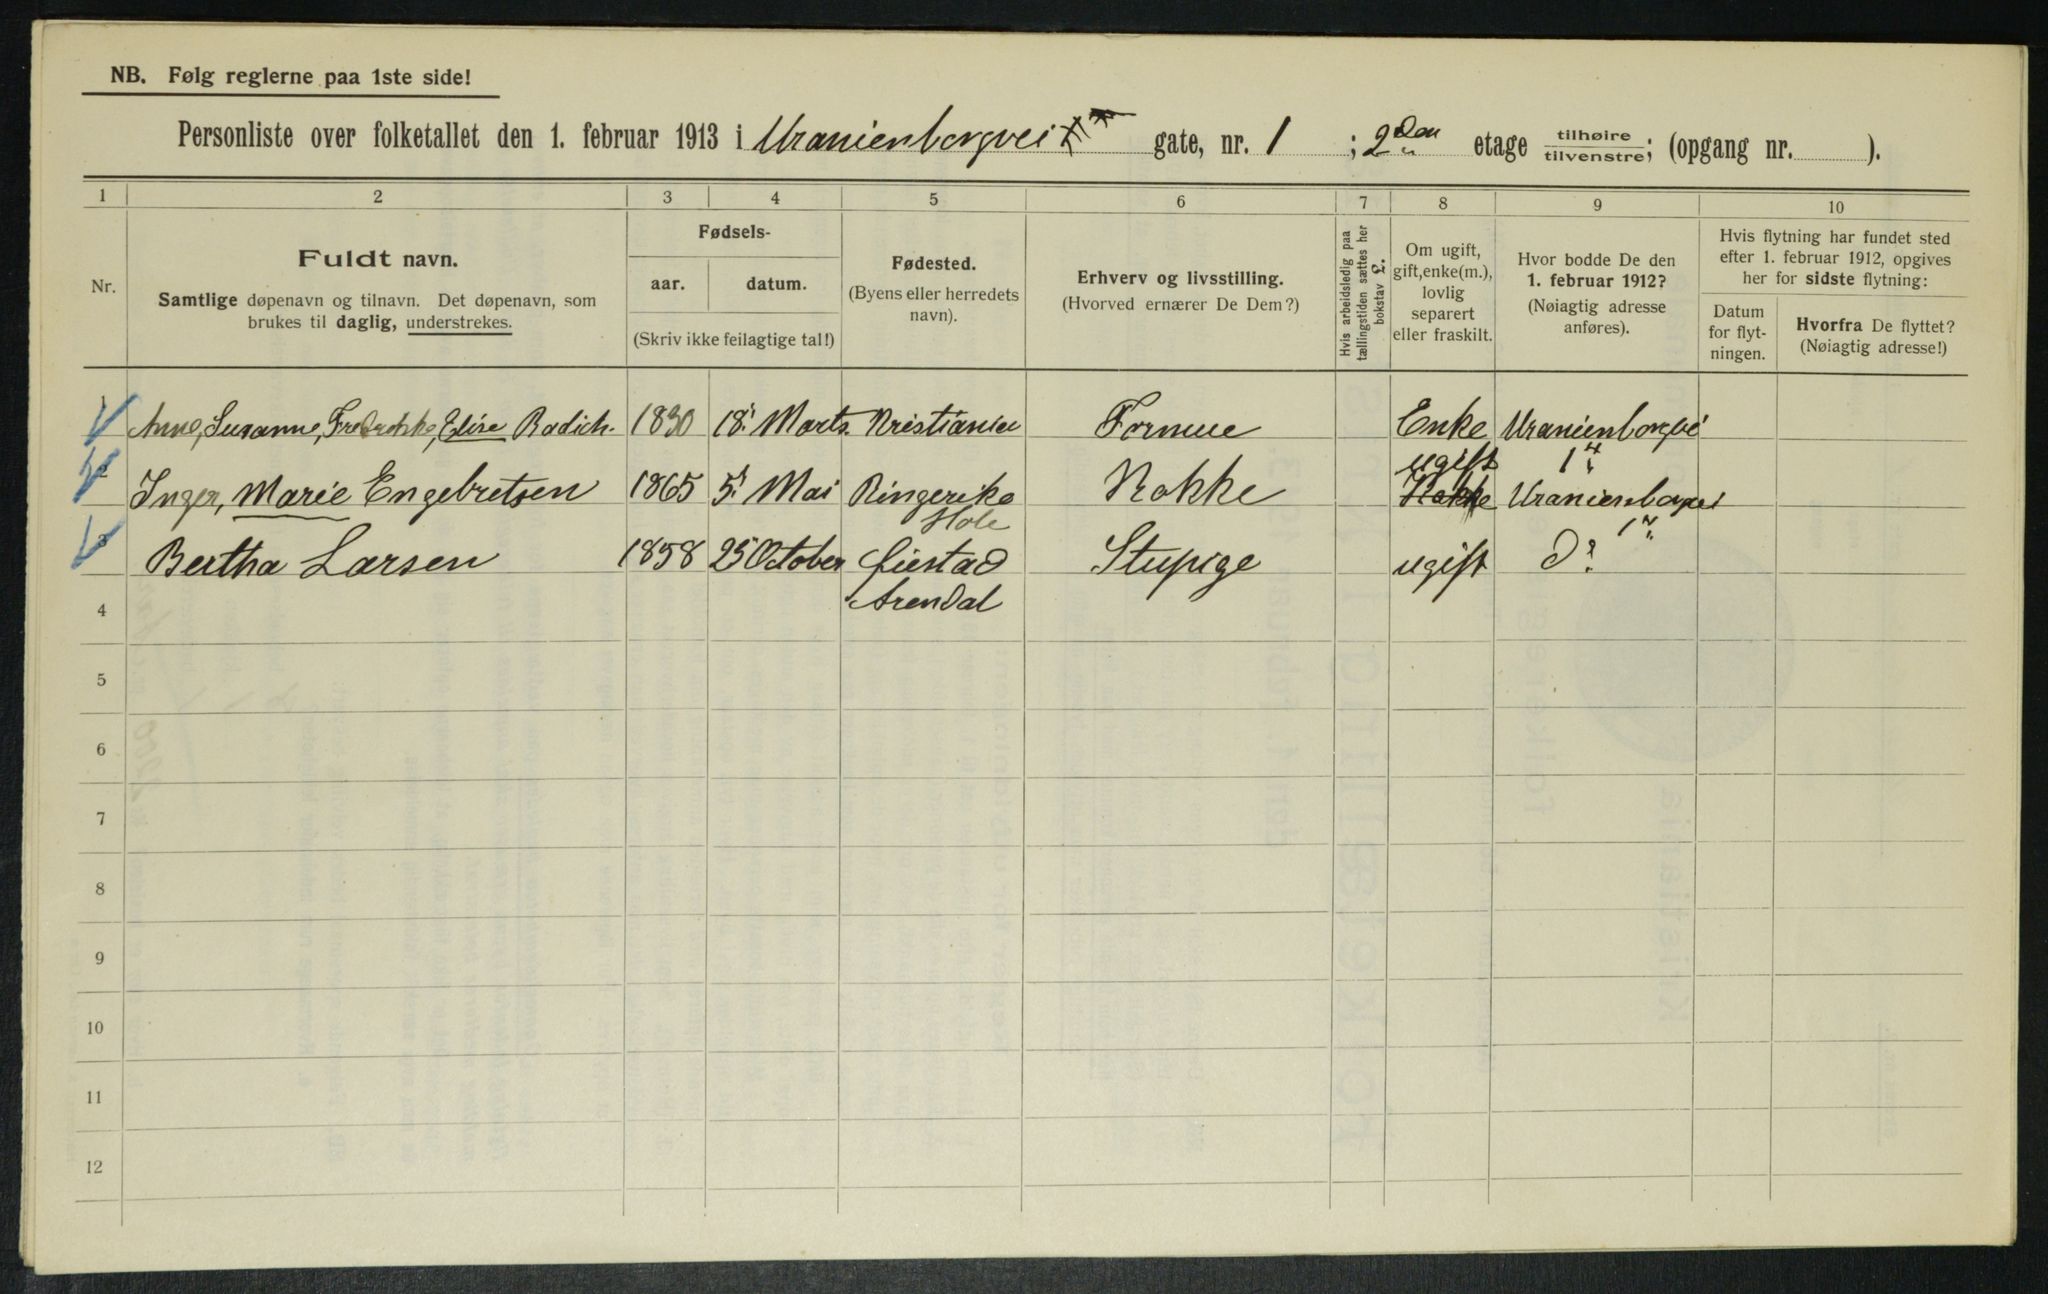 NB. Følg reglerne paa 1ste side!
Personliste over folketallet den 1. februar 1913 i Uranienborgvei gate, nr. 1 ; 2den etage tilhøire tilvenstre; (opgang nr. ).
1 2 3 4 5 6 7 8 9 10
Nr.
Fuldt navn.
Samtlige døpenavn og tilnavn. Det døpenavn, som
brukes til daglig, understrekes.
Fødsels-
aar. datum.
(Skriv ikke feilagtige tal!)
Fødested.
(Byens eller herredets
navn).
Erhverv og livsstilling.
(Hvorved ernærer De Dem?)
Hvis arbeidsledig paa
tællingstiden sættes her
bokstav L.
Om ugift,
gift, enke(m.),
lovlig
separert
eller fraskilt.
Hvor bodde De den
1. februar 1912?
(Nøiagtig adresse
anføres).
Hvis flytning har fundet sted
efter 1. februar 1912, opgives
her for sidste flytning:
Datum
for flyt-
ningen.
Hvorfra De flyttet?
(Nøiagtig adresse!)
1 Anne, Susanne, Fredrikke, Elise Radich. 1830 18. Marts. Kristiania Formue Enke Uranienborgvei
1
2 Inger, Marie Engebretsen 1865 5. Mai Ringerike Kokke ugift Kokke Uranienborgvei
Hole 1
3 Bertha Larsen 1858 25 October Øiestad Stupige ugift Do
Arendal
4
5
6
7
8
9
10
11
12